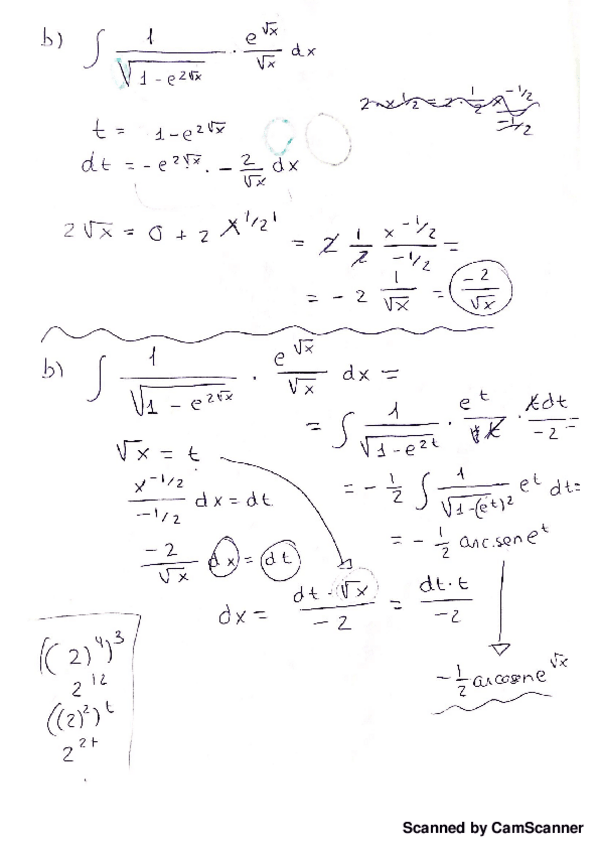 b) ∫ 1/√(1-e^(2√x)) · e^(√x)/√x dx
t = 1-e^(2√x)
dt = -e^(2√x) · - 2/√x dx
2√x = 0 + 2 x^(1/2) ' = 2 1/2 x^(-1/2)/(-1/2) =
= - 2 1/√x = -2/√x
b) ∫ 1/√(1-e^(2√x)) · e^(√x)/√x dx =
= ∫ 1/√(1-e^(2t)) · e^t/t · t dt/-2 =
√x = t
x^(-1/2)/(-1/2) dx = dt
= - 1/2 ∫ 1/√(1-(e^t)^2) e^t dt =
= - 1/2 arc.sen e^t
-2/√x dx = dt
dx = dt · √x/-2 = dt·t/-2
- 1/2 arcosene^(√x)
((2)^4)^3
2^12
((2)^2)^t
2^(2t)
Scanned by CamScanner